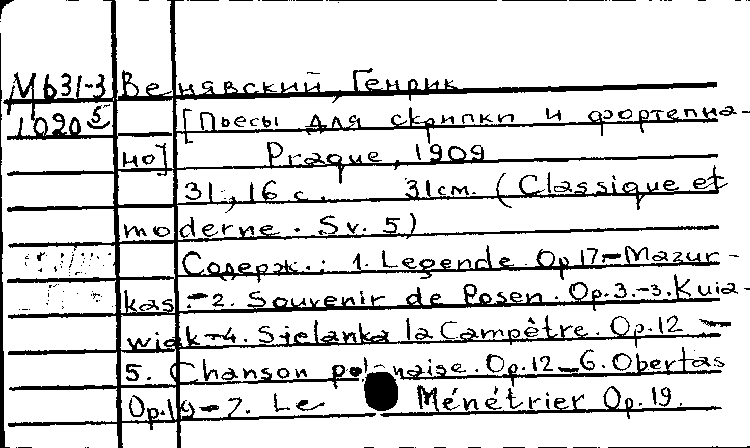 Мб31-3 Венявский, Генрик
1020 5 [Пьесы для скрипки и фортепиа-
но] Prague, 1909
31, 16 с. 31см. (Classique et
moderne. Sv. 5)
Содерж.: 1. Legende. Op 17.-Mazur-
kas.-2. Souvenir de Posen. Op.3.-3. Kuia-
wiak-4. Sielanka la Campêtre. Op.12 -
5. Chanson polonaise. Op.12 - 6. Obertas
Op.19-7. Le Ménétrier Op.19.